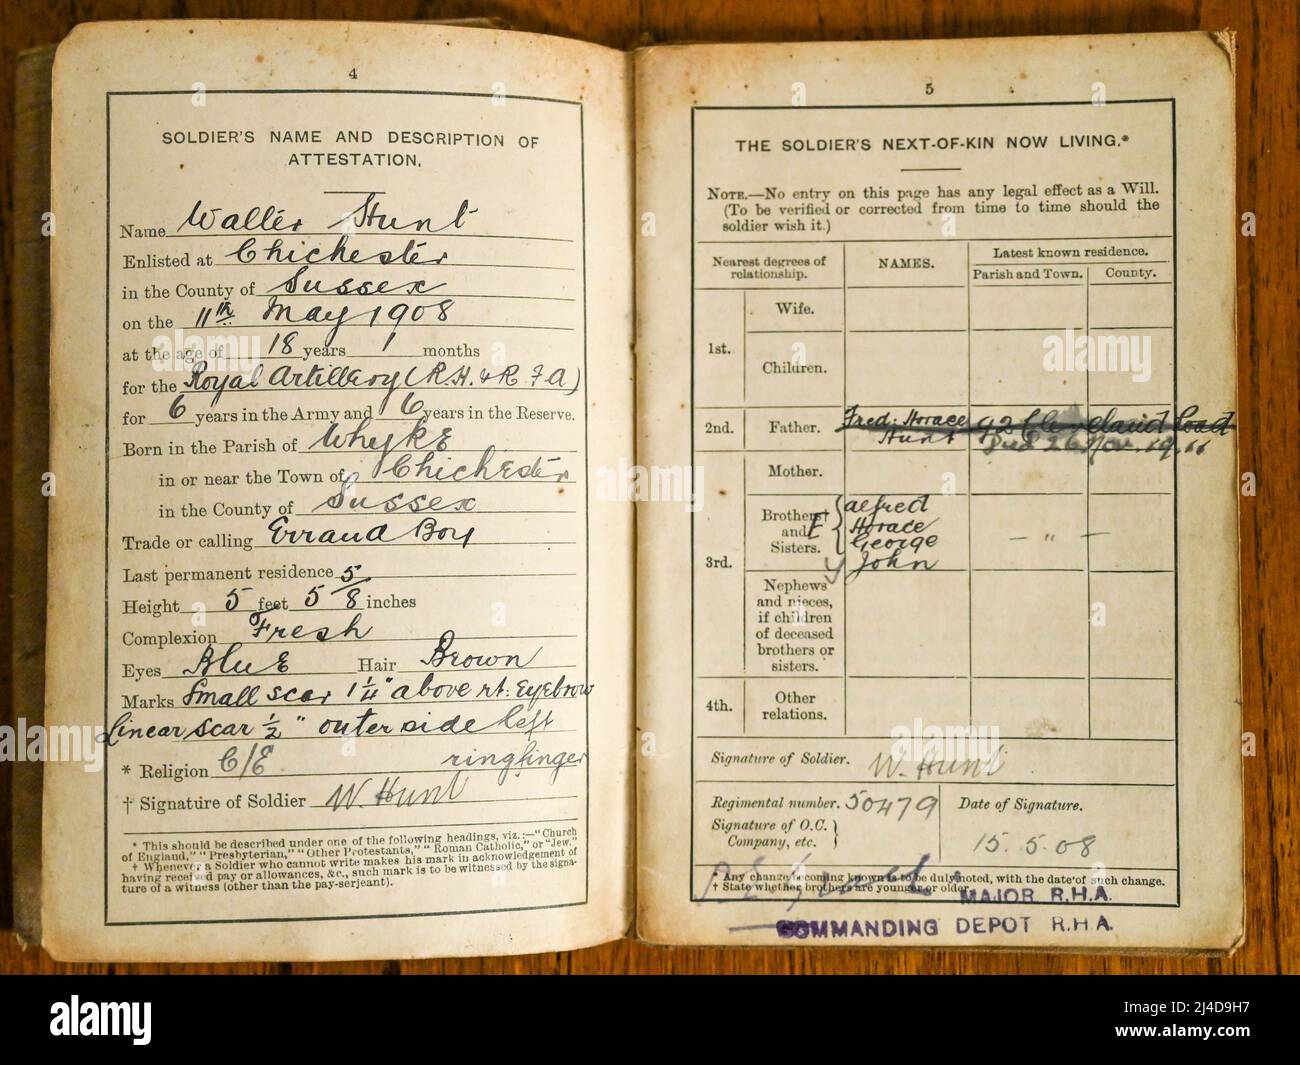 4
SOLDIER'S NAME AND DESCRIPTION OF
ATTESTATION.
Name Walter Hunt
Enlisted at Chichester
in the County of Sussex
on the 11th May 1908
at the age of 18 years 1 months
for the Royal Artillery (R.H. & R.F.A)
for 6 years in the Army and 6 years in the Reserve.
Born in the Parish of Whyke
in or near the Town of Chichester
in the County of Sussex
Trade or calling Errand Boy
Last permanent residence
Height 5 feet 5 5/8 inches
Complexion Fresh
Eyes Blue Hair Brown
Marks Small scar 1 1/4" above rt: Eyebrow
Linear scar 1/2" outer side left
ringfinger
* Religion C/E
† Signature of Soldier W. Hunt
* This should be described under one of the following headings, viz.:—"Church
of England," "Presbyterian," "Other Protestants," "Roman Catholic," or "Jew."
† Whenever a Soldier who cannot write makes his mark in acknowledgement of
having received pay or allowances, &c., such mark is to be witnessed by the signa-
ture of a witness (other than the pay-serjeant).
5
THE SOLDIER'S NEXT-OF-KIN NOW LIVING.*
NOTE.—No entry on this page has any legal effect as a Will.
(To be verified or corrected from time to time should the
soldier wish it.)
Nearest degrees of
relationship.
NAMES.
Latest known residence.
Parish and Town. County.
1st.
Wife.
Children.
2nd. Father. Fred: Horace Hunt 92 Cleveland Road
Died 26 Nov. 19
3rd.
Mother.
Brothers†
and
Sisters.
E
Alfred
Horace
George
Y John
— " —
Nephews
and nieces,
if children
of deceased
brothers or
sisters.
4th. Other
relations.
Signature of Soldier. W. Hunt
Regimental number. 50479 Date of Signature.
Signature of O.C.
Company, etc. } 15.5.08
* Any change becoming known is to be duly noted, with the date of such change.
† State whether brothers are younger or older.
MAJOR R.H.A.
COMMANDING DEPOT R.H.A.
alamy
Image ID: 2J4D9H7
www.alamy.com